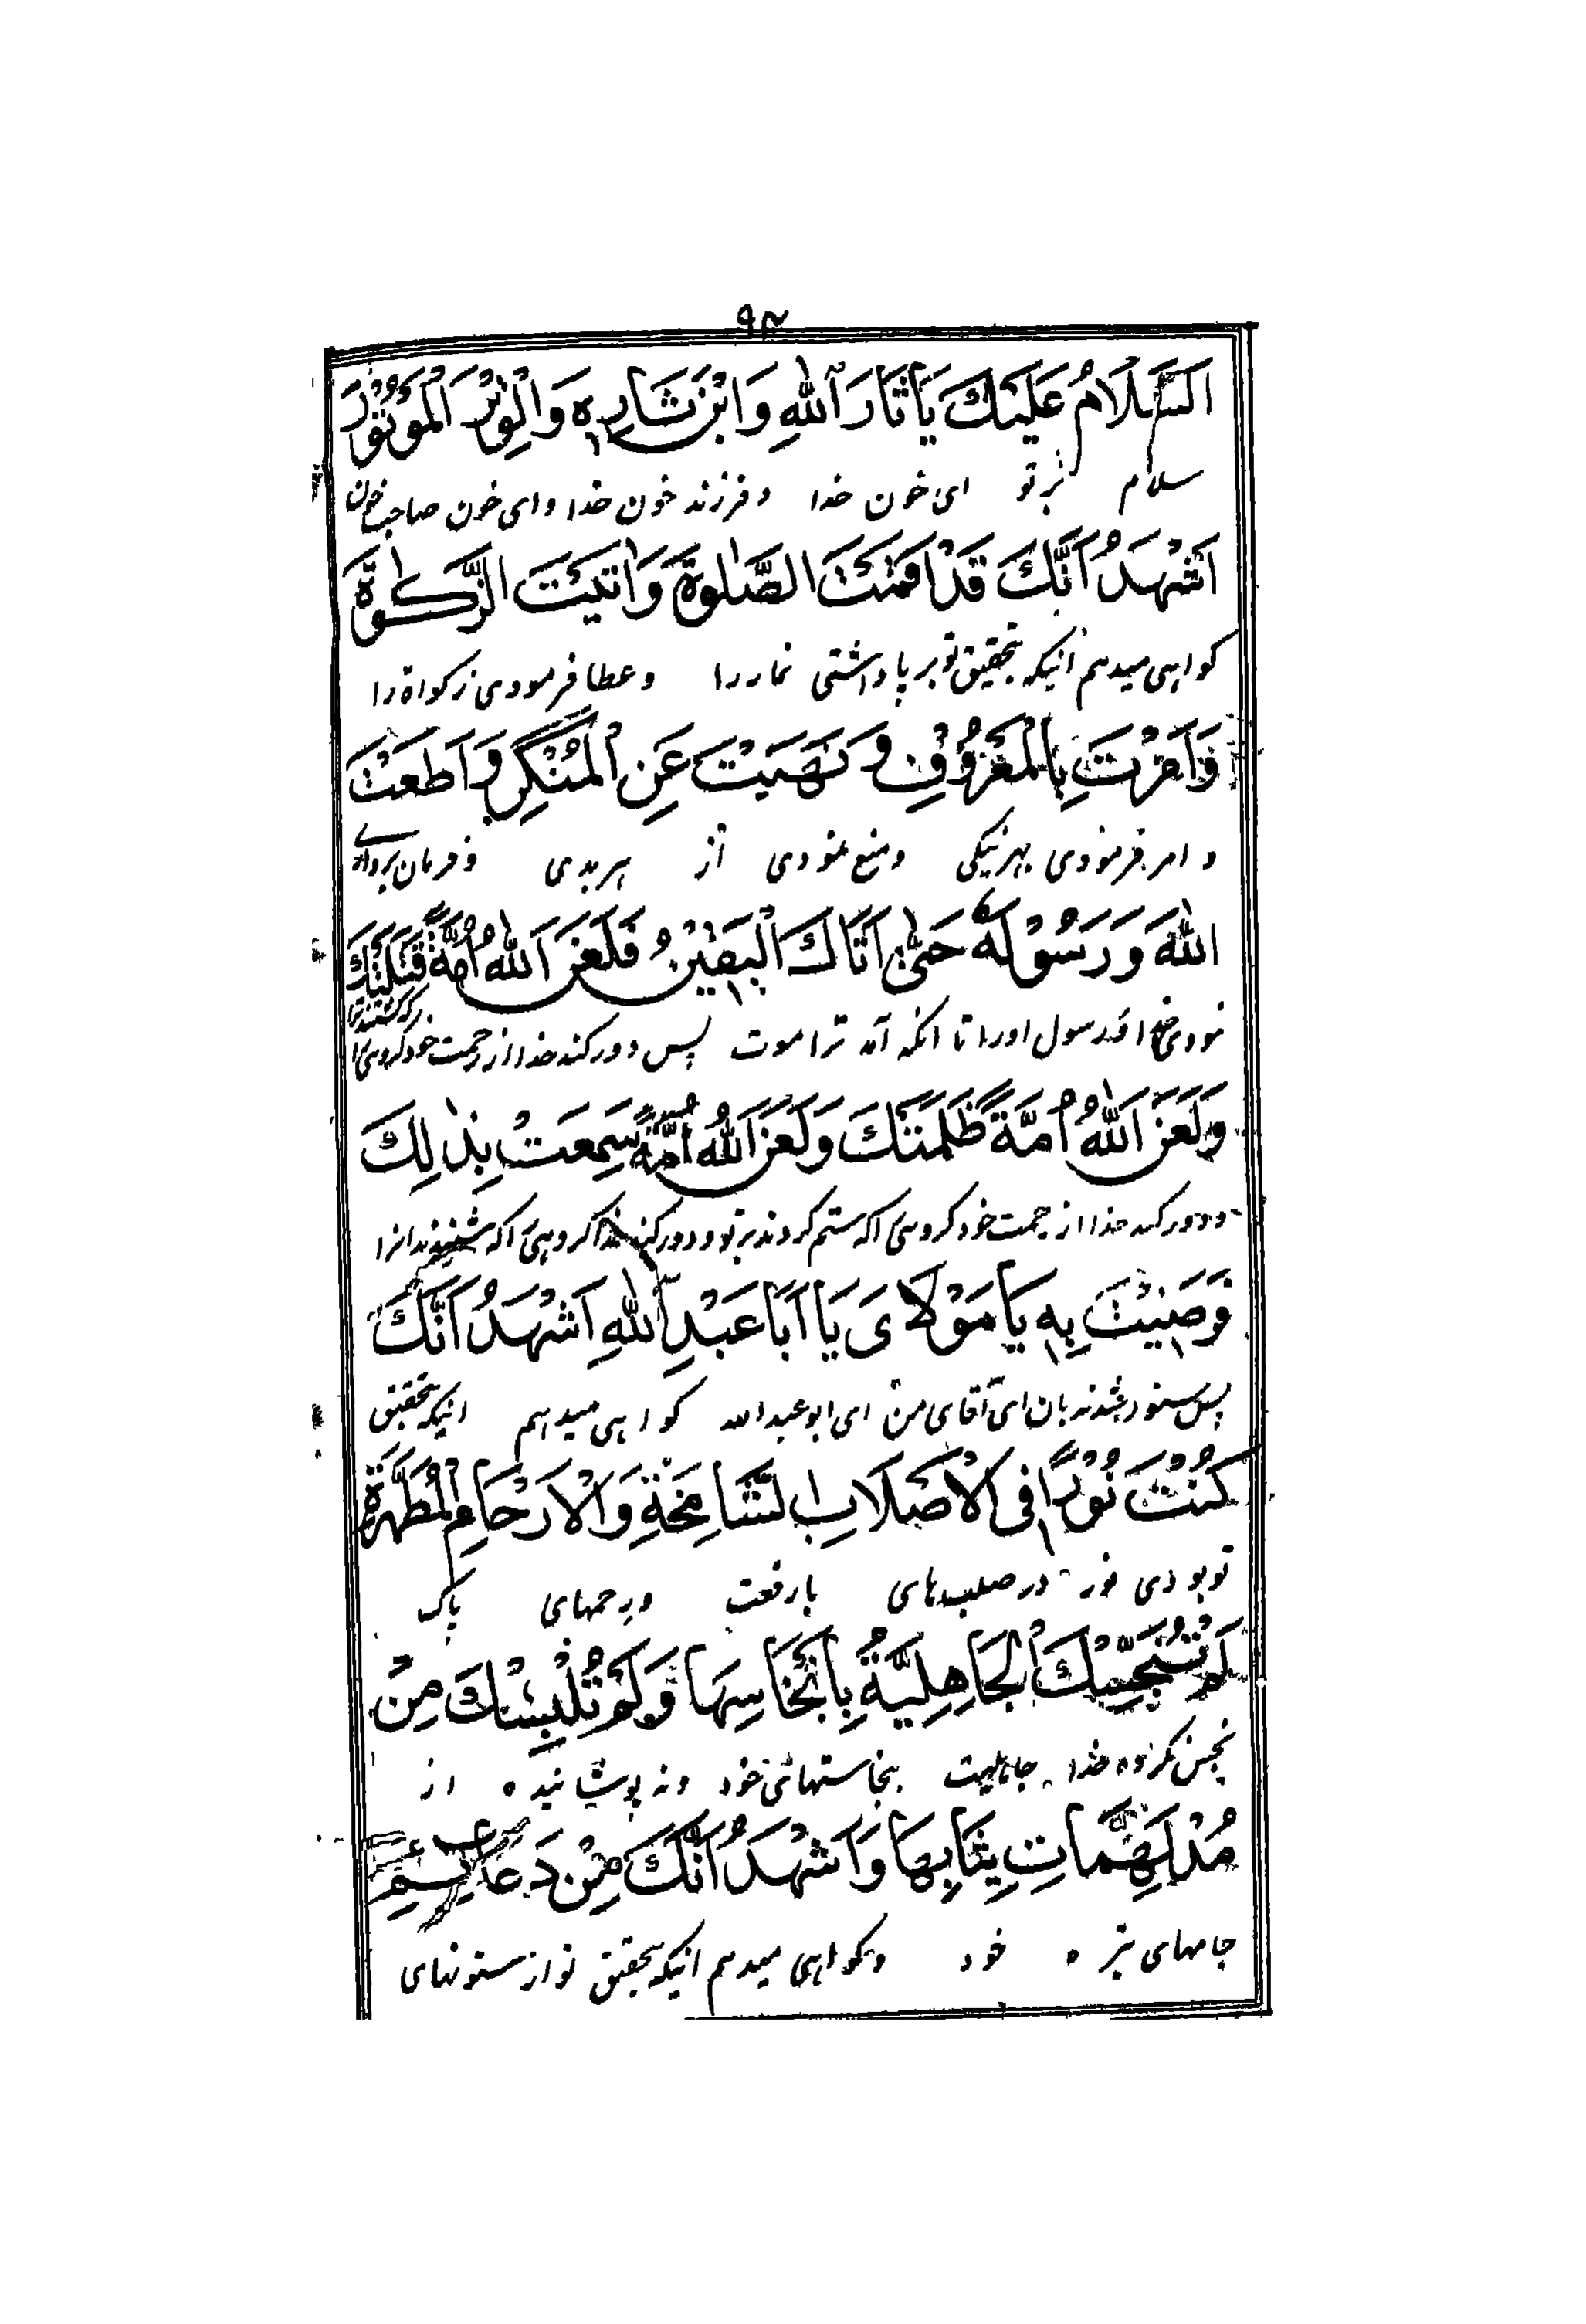 ۹۳
اَلسَّلَامُ عَلَیْكَ یَا ثَارَ اللّٰهِ وَابْنَ ثَارِهِ وَالْوِتْرَ الْمَوْتُوْرَ
سلام بر تو ای خون خدا و فرزند خون خدا و ای خون صاحب خون
اَشْهَدُ اَنَّكَ قَدْ اَقَمْتَ الصَّلٰوةَ وَاٰتَیْتَ الزَّكٰوةَ
کواهی میدهم انیکه بتحقیق تو بر پا داشتی نماز را و عطا فرمودی زکواة را
وَاَمَرْتَ بِالْمَعْرُوْفِ وَ نَهَیْتَ عَنِ الْمُنْكَرِ وَ اَطَعْتَ
و امر فرمودی بهر نیکی و منع نمودی از هر بدی و فرمان برداری
اللّٰهَ وَ رَسُوْلَهٗ حَتّٰی اَتَاكَ الْیَقِیْنُ فَلَعَنَ اللّٰهُ اُمَّةً قَتَلَتْكَ
نمودی خدا و رسول او را تا انکه آمد ترا موت پس دور کند خدا از رحمت خود کروهی را که کشتند ترا
وَ لَعَنَ اللّٰهُ اُمَّةً ظَلَمَتْكَ وَ لَعَنَ اللّٰهُ اُمَّةً سَمِعَتْ بِذٰلِكَ
و دور کند خدا از رحمت خود کروهی را که ستم کردند بر تو و دور کند خدا کروهی را که شنیدند انرا
فَرَضِیَتْ بِهٖ یَا مَوْلَایَ یَا اَبَا عَبْدِ اللّٰهِ اَشْهَدُ اَنَّكَ
پس خشنود شدند بان ای آقای من ای ابو عبد الله کواهی میدهم انیکه بتحقیق
كُنْتَ نُوْرًا فِی الْاَصْلَابِ الشَّامِخَةِ وَ الْاَرْحَامِ الْمُطَهَّرَةِ
تو بودی نور در صلبهای با رفعت و رحمهای پاک
لَمْ تُنَجِّسْكَ الْجَاهِلِیَّةُ بِاَنْجَاسِهَا وَ لَمْ تُلْبِسْكَ مِنْ
نجس نکرده جاهلیت بنجاستهای خود و نه پوشانیده از
مُدْلَهِمَّاتِ ثِیَابِهَا وَ اَشْهَدُ اَنَّكَ مِنْ دَعَائِمِ
جامهای تیره خود و کواهی میدهم انیکه بتحقیق تو از ستونهای